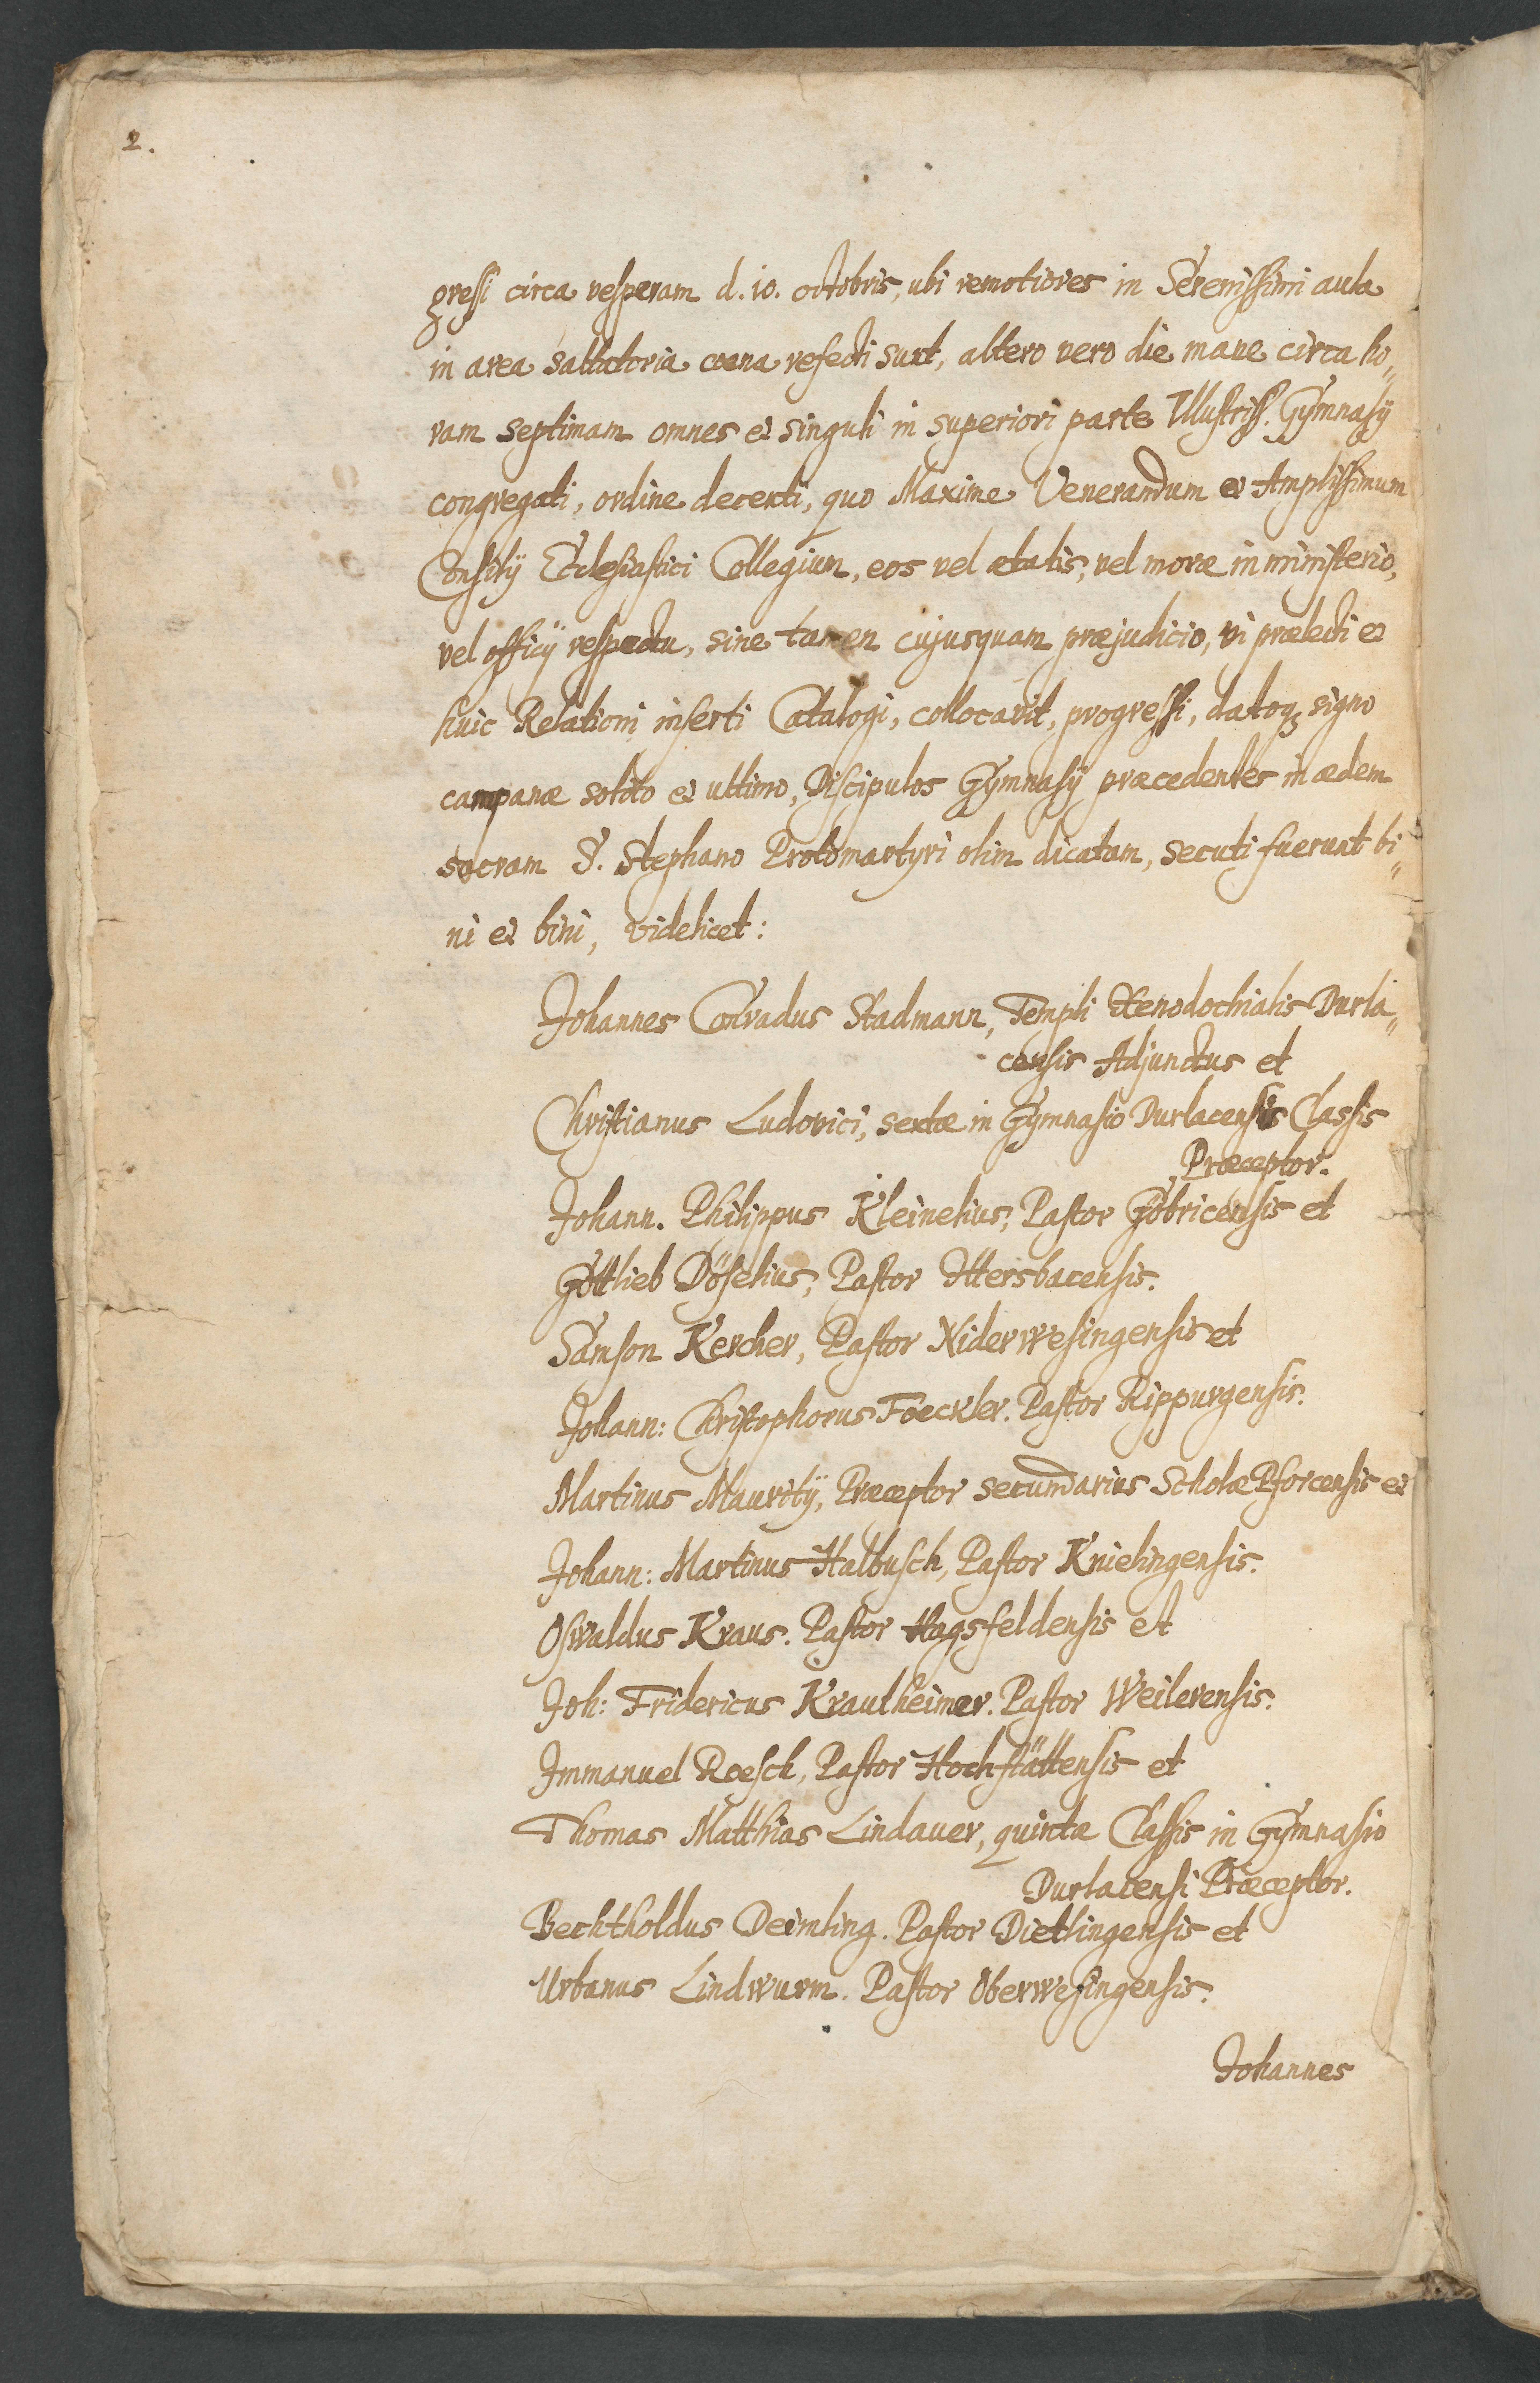 2.
gressi circa vesperam d. 10. octobris, ubi remotiores in Serenissimi aula
in area saltatoria coena refecti sunt, altero vero die mane circa ho„
ram septimam omnes et singuli in superiori parte Illustriss. Gÿmnasÿ
congregati, ordine decenti, quo Maxime Venerandum et Amplissimum
Consilÿ Ecclesiastici Collegium, eos vel ætatis, vel moræ in ministerio,
vel officÿ respectu, sine tamen cujusquam præjudicio, vi prælecti et
huic Relationi inserti Catalogi, collocavit, progressi, datoq; signo
campanæ solito et ultimo, Discipulos Gÿmnasÿ præcedentes in ædem
sacram S. Stephano Protomartyri olim dicatam, secuti fuerunt bi„
ni et bini, videlicet:
Johannes Conradus Stadmann, Templi Xenodochialis Durla„
censis Adjunctus et
Christianus Ludovici, sextæ in Gÿmnasio Durlacensis Classis
Præceptor.
Johann. Philippus Kleinelius, Pastor Göbricensis et
Gottlieb Döselius, Pastor Ittersbacensis.
Samson Kercher, Pastor Niderwesingensis et
Johann: Christophorus Foeckler. Pastor Rippurgensis.
Martinus Mauritÿ, Præceptor secundarius Scholæ Pforcensis et
Johann: Martinus Halbusch, Pastor Knielingensis.
Oswaldus Kraus. Pastor Hagsfeldensis et
Joh: Fridericus Krautheimer. Pastor Weilerensis.
Immanuel Roesch, Pastor Hochstättensis et
Thomas Matthias Lindauer, quintæ Classis in Gÿmnasio
Durlacensi Præceptor.
Bechtholdus Deimling. Pastor Dietlingensis et
Urbanus Lindwurm. Pastor Oberwesingensis.
Johannes